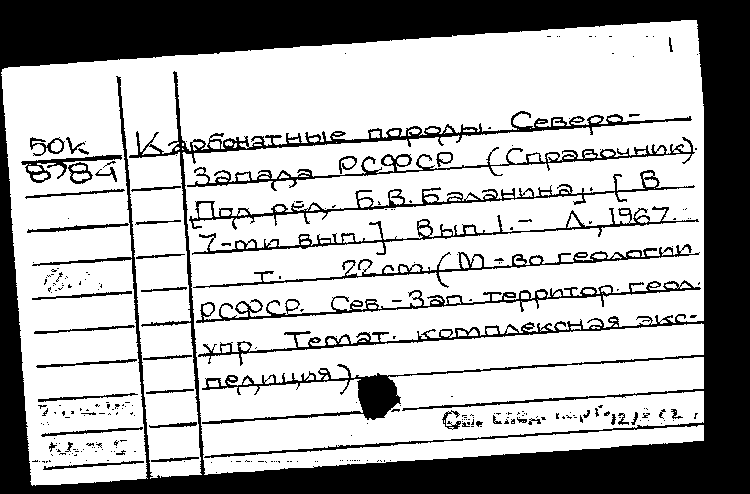 1
50К Карбонатные породы Северо-
8784 Запада РСФСР (Справочник)
[Под ред. Б.В. Баланина]. [В
7-ми вып.]. Вып. 1. - Л., 1967.-
т. 22 cm. (М-во геологии
РСФСР. Сев.-Зап. территор. геол.
упр. Темат. комплексная экс-
педиция).
См. след.